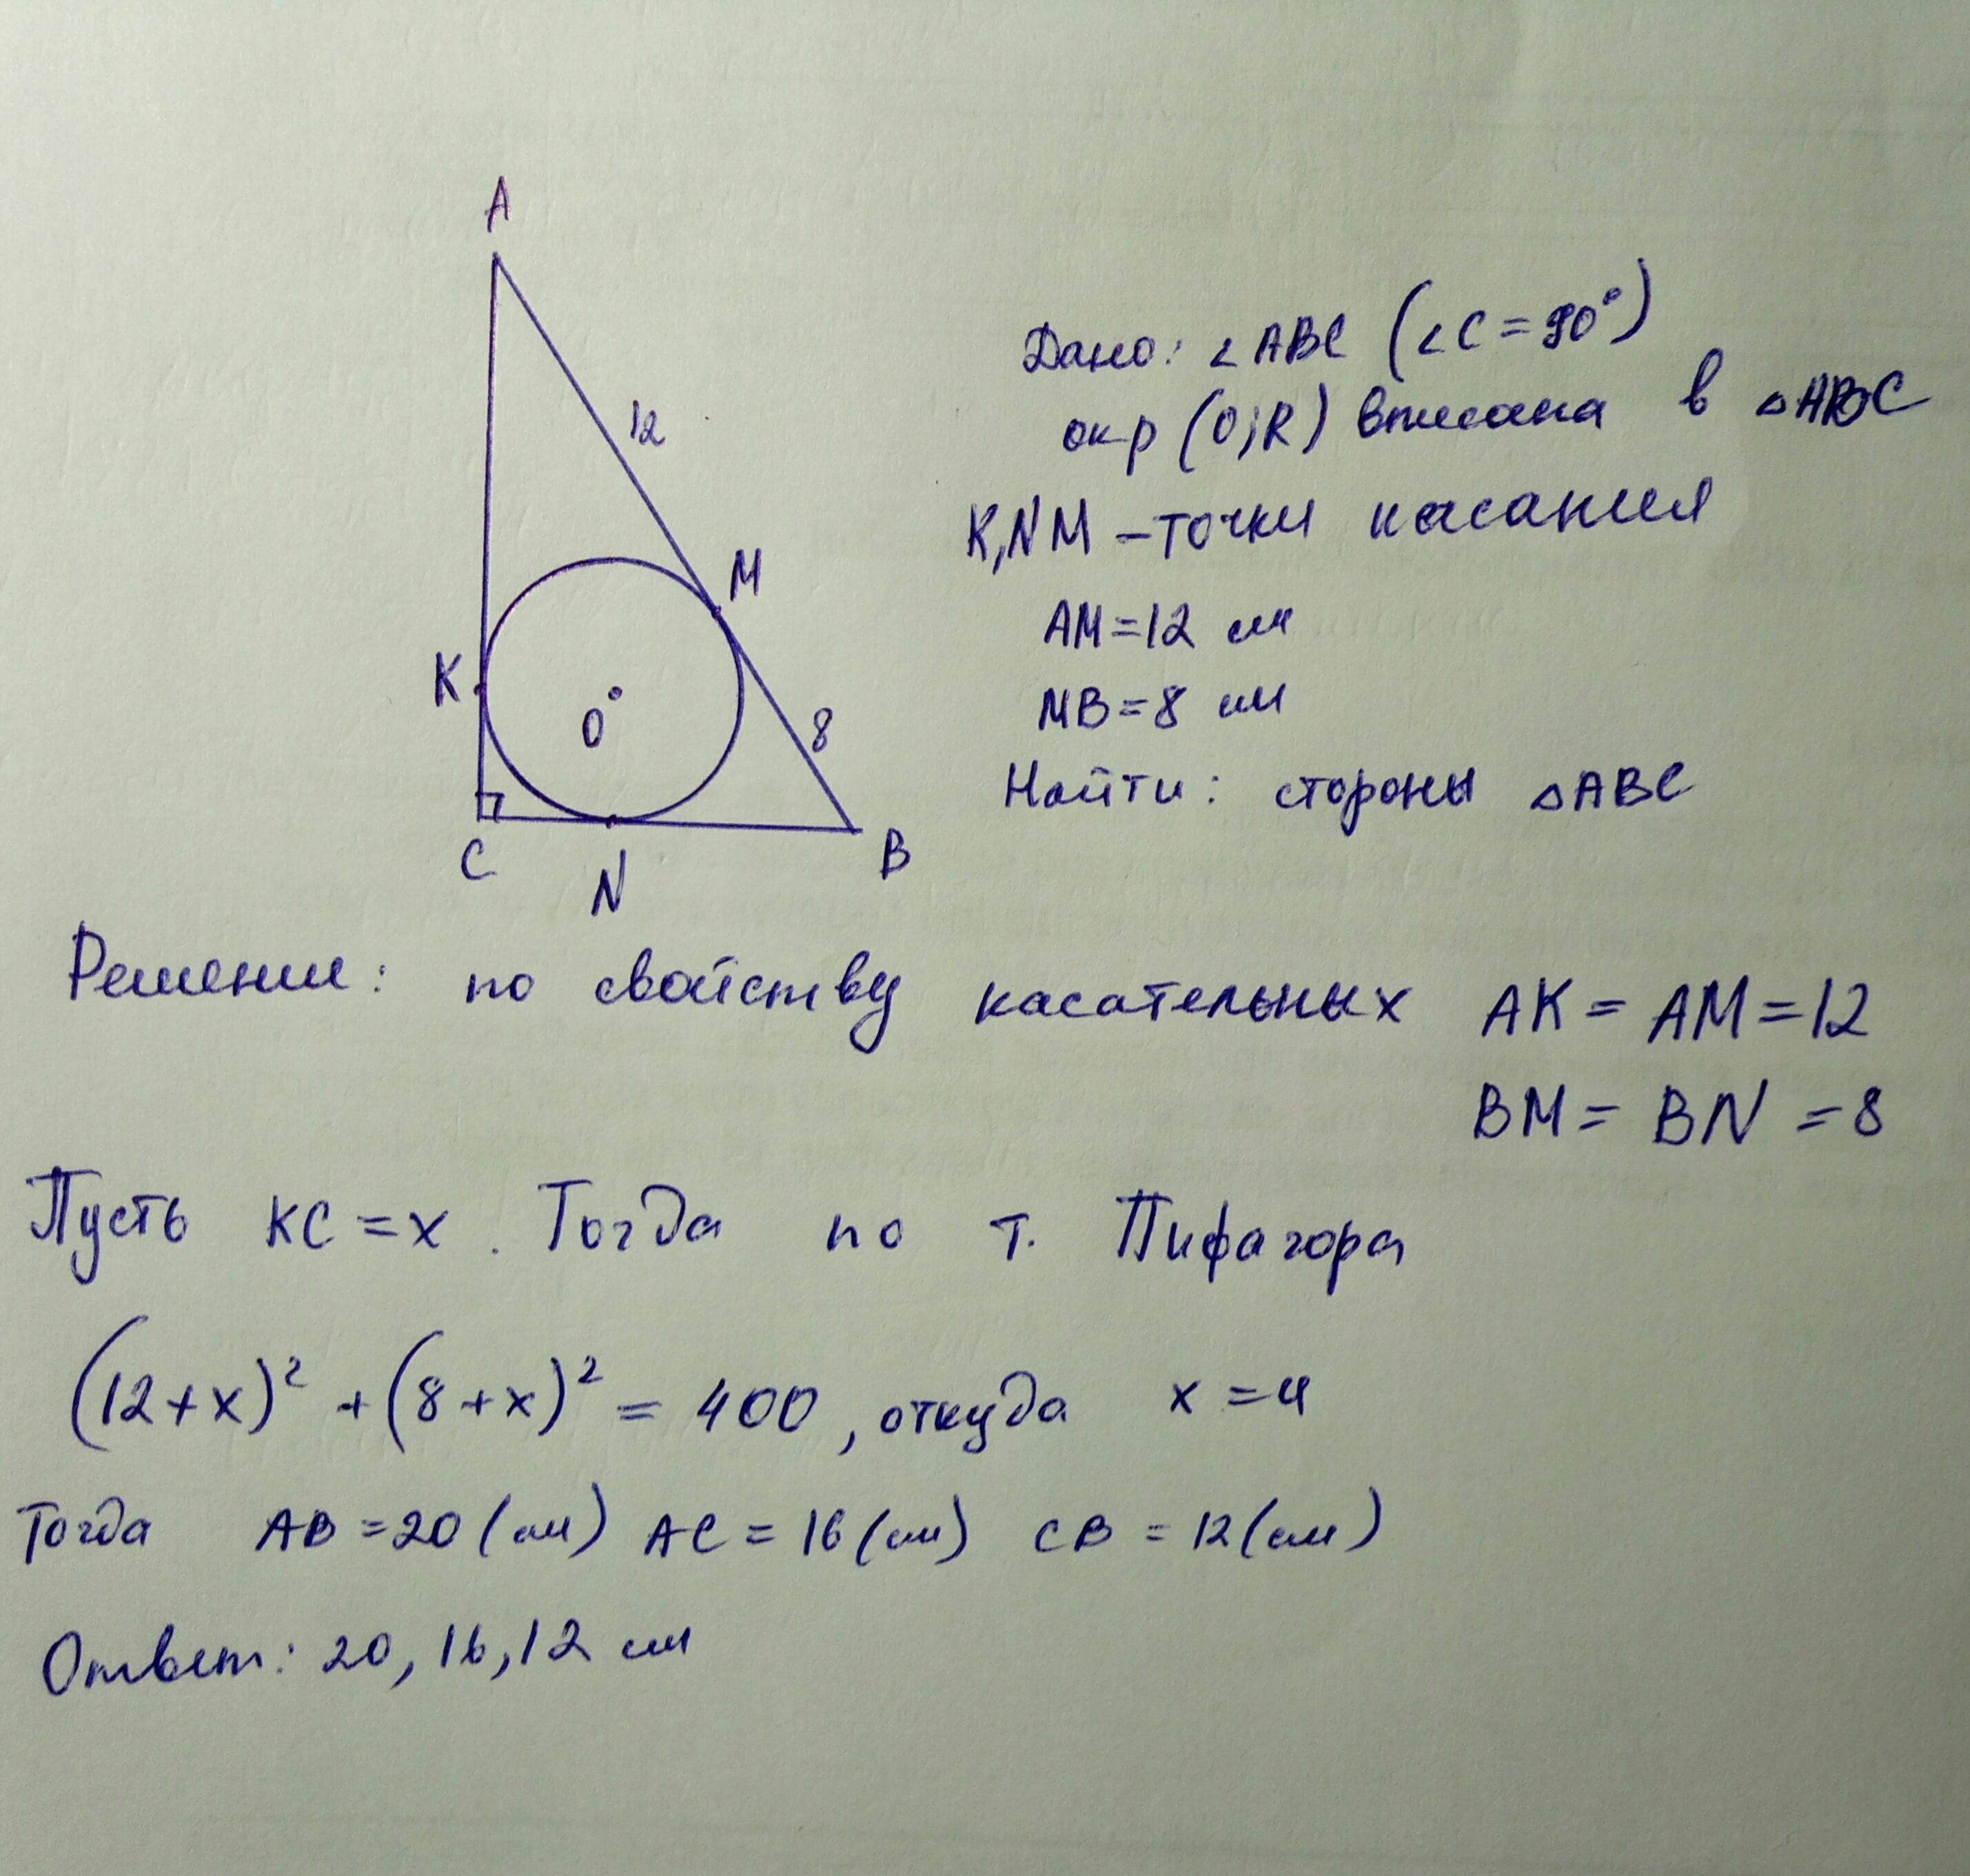 A
12
M
K
O
8
C
N
B
Дано: ∠ABC (∠C=90°)
окр (O;R) вписана в △ABC
K,NM – точки касания
AM=12 см
MB=8 см
Найти: стороны △ABC
Решение: по свойству касательных AK = AM=12
BM = BN = 8
Пусть KC=x. Тогда по т. Пифагора
(12+x)² + (8+x)² = 400, откуда x=4
Тогда AB=20(см) AC=16(см) CB=12(см)
Ответ: 20, 16, 12 см